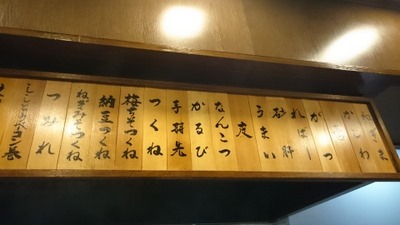 ねぎま
かしわ
がつ
ればー
砂肝
うまい
皮
なんこつ
かるび
手羽先
つくね
梅ちそつくね
納豆つくね
ねぎみそつくね
つみれ